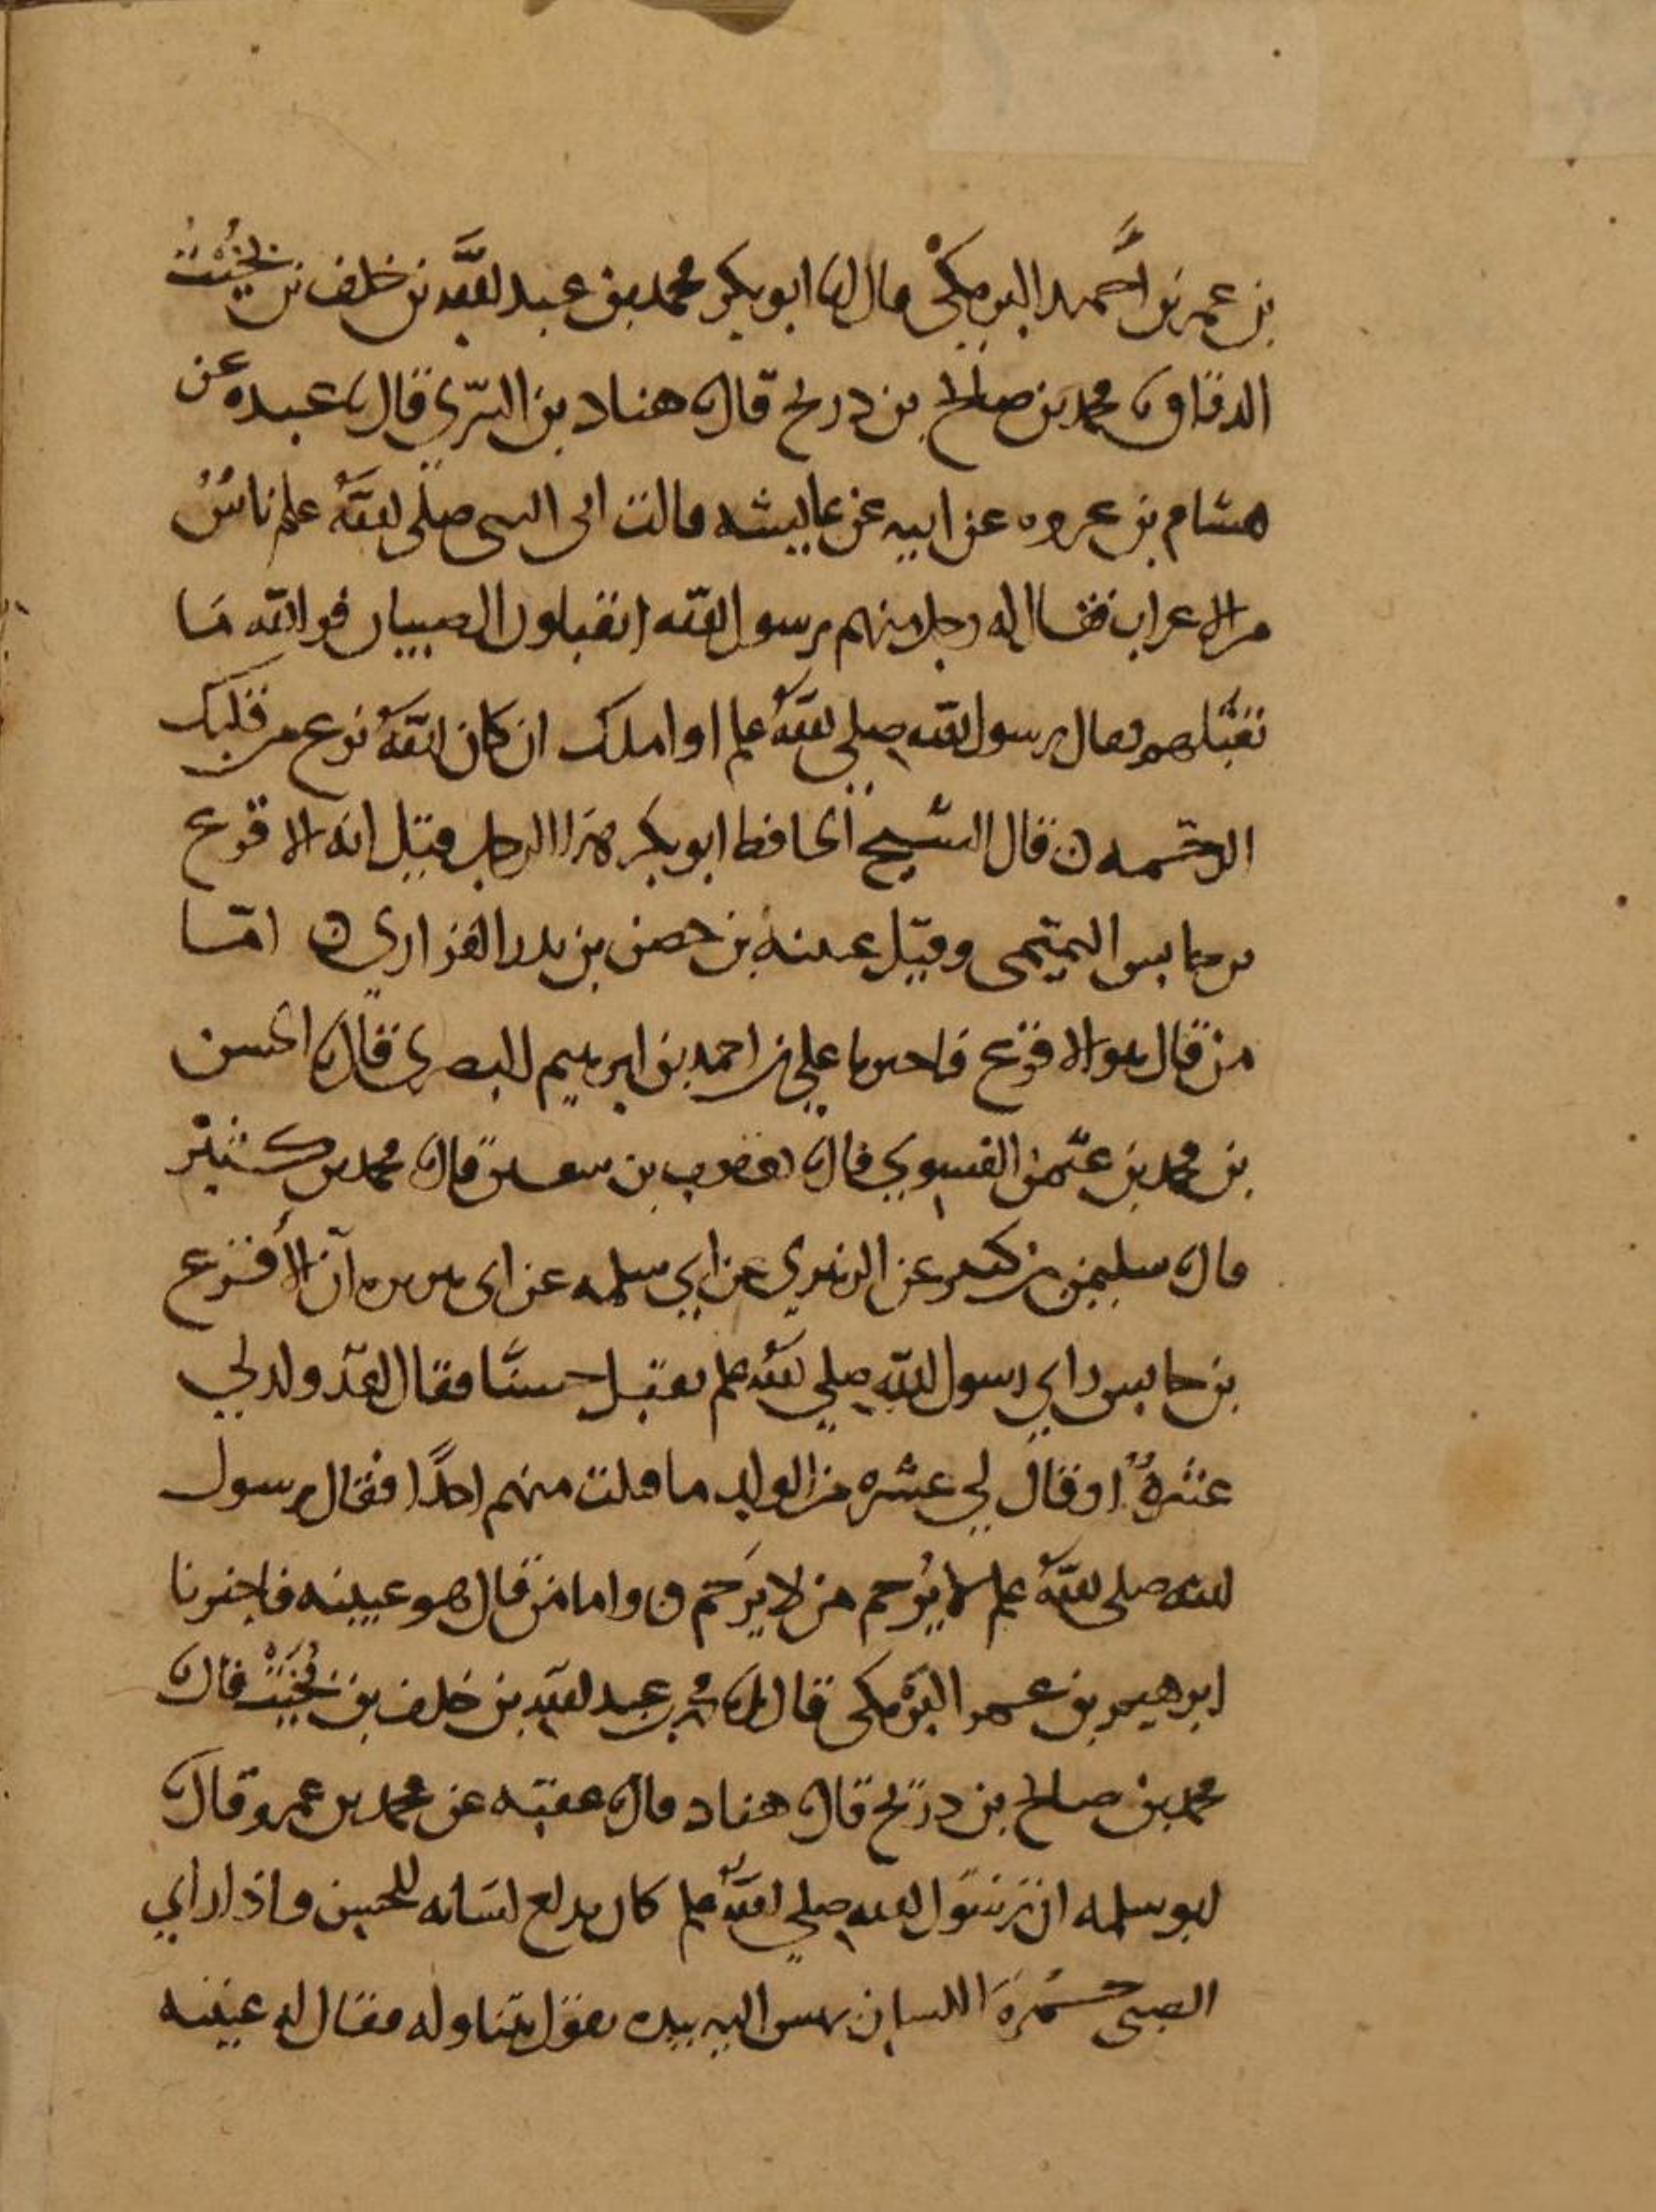 بن عمر بن أحمد البرمكي قال انا ابو بكر محمد بن عبد الله بن خلف بن بخيت
الدقاق نا محمد بن صالح بن دريح قال نا هناد بن السري قال نا عبده عن
هشام بن عروه عن ابيه عن عايشه قالت اتى النبي صلى الله علم ناس
من الاعراب فقال له رجل منهم يرسول الله اتقبلون الصبيان فوالله ما
نقبلهم فقال رسول الله صلى الله علم او املك ان كان الله نزع من قلبك
الرحمه ن قال الشيخ الحافظ ابو بكر هذا الرجل قيل انه الاقرع
بن حابس التميمي وقيل عيينه بن حصن بن بدر الفزاري ن امّا
من قال هو الاقرع فاخبرنا علي بن احمد بن ابرهيم البصري قال نا الحسن
بن محمد بن عثمن الفسوي قال نا يعقوب بن سفين قال نا محمد بن كثير
قال نا سليمن بن كثير عن الزهري عن ابي سلمه عن ابي هريره أن الأقرع
بن حابس راي رسول الله صلي الله علم يقبل حسنًا فقال لقد ولد لي
عشرةٌ او قال لي عشره من الولد ما قبلت منهم احدًا فقال رسول
الله صلى الله علم لا يُرحم من لا يَرحم ن واما من قال هو عيينه فاخبرنا
ابرهيم بن عمر البرمكي قال انا محمد بن عبد الله بن خلف بن بُخَيْت قال نا
محمد بن صالح بن دريح قال نا هناد قال نا عقبه عن محمد بن عمرو قال نا
ابو سلمه ان رسول الله صلي الله علم كان يدلع لسانه للحسين واذا راي
الصبي حُمْرَةَ اللسان يهش اليه بيده يقول يتناوله فقال له عيينه